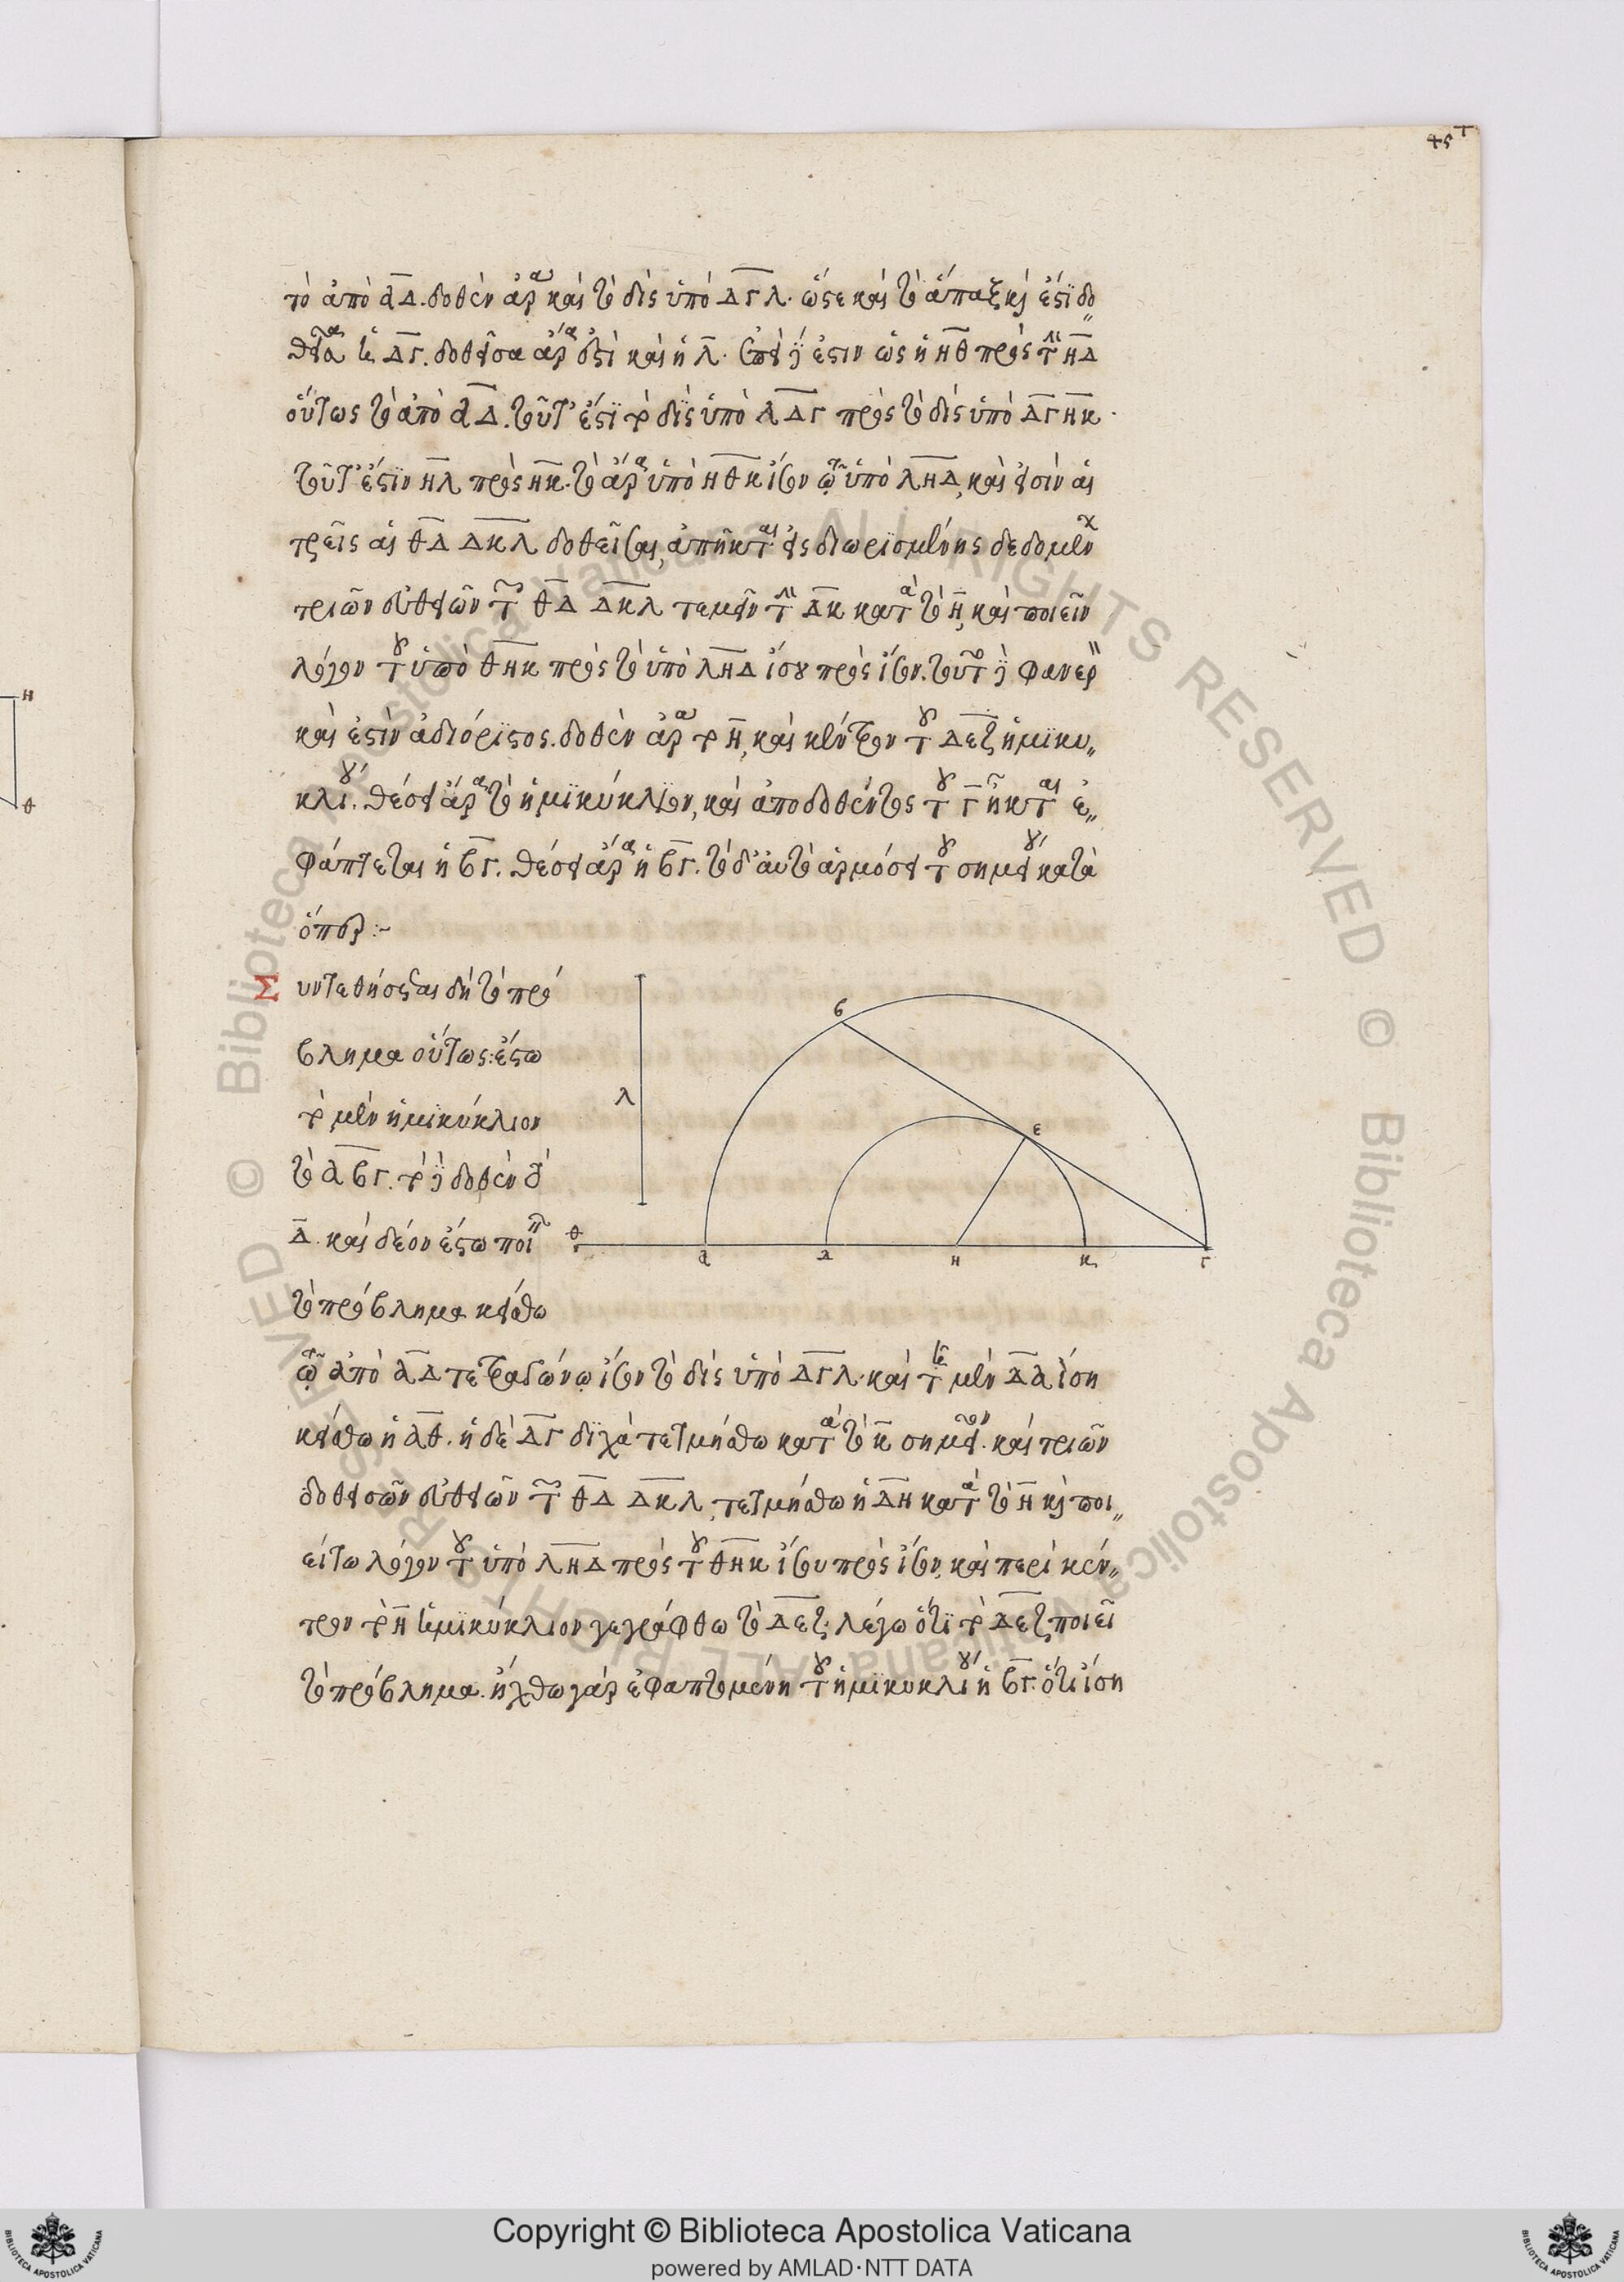 45
τὸ ἀπὸ ΑΔ. δοθὲν ἄρα καὶ τὸ δὶς ὑπὸ ΔΓ Λ· ὥστε καὶ τὸ ἅπαξ καὶ ἔστι δο„
θεῖσα ἡ ΔΓ. δοθεῖσα ἄρα ἐστὶ καὶ ἡ Λ. ἐπεὶ δέ ἐστιν ὡς ἡ ΗΘ πρὸς τὴν ΗΔ
οὕτως τὸ ἀπὸ ΑΔ. τοῦτ' ἔστι τὸ δὶς ὑπὸ Λ ΔΓ πρὸς τὸ δὶς ὑπὸ ΔΓ ΗΚ.
τοῦτ' ἔστιν ἡ Λ πρὸς ΗΚ. τὸ ἄρα ὑπὸ ΗΘ Κ ἴσον τῷ ὑπὸ Λ ΗΔ, καὶ εἰσὶν αἱ
τρεῖς αἱ ΘΔ ΔΚ Λ δοθεῖσαι, ἀπῆκται εἰς διωρισμένης δεδομένων
τριῶν εὐθειῶν τῶν ΘΔ ΔΚ Λ τεμεῖν τὴν ΔΚ κατὰ τὸ Η, καὶ ποιεῖν
λόγον τοῦ ὑπὸ ΘΗ Κ πρὸς τὸ ὑπὸ Λ ΗΔ ἴσου πρὸς ἴσον. τοῦτο δὲ φανερὸν
καὶ ἐστὶν ἀδιόριστος. δοθὲν ἄρα τὸ Η, καὶ κέντρον τοῦ ΔΕΖ ἡμικυ„
κλίου. θέσει ἄρα τὸ ἡμικύκλιον, καὶ ἀπὸ δοθέντος τοῦ Γ ἦκται ἐ„
φάπτεται ἡ ΒΓ. θέσει ἄρα ἡ ΒΓ. τὸ δ' αὐτὸ ἁρμόσει τοῦ σημείου κατὰ
ὅπερ :-
Συντεθήσεται δὴ τὸ πρό
βλημα οὕτως: ἔστω
τὸ μὲν ἡμικύκλιον
τὸ ΑΒΓ. τὸ δὲ δοθὲν τὸ
Δ. καὶ δέον ἔστω ποιεῖν
τὸ πρόβλημα κείσθω
τῷ ἀπὸ ΑΔ τετραγώνῳ ἴσον τὸ δὶς ὑπὸ ΔΓ Λ. καὶ τῇ μὲν ΔΑ ἴση
κείσθω ἡ ΑΘ. ἡ δὲ ΔΓ δίχα τετμήσθω κατὰ τὸ Κ σημεῖον. καὶ τριῶν
δοθεισῶν εὐθειῶν τῶν ΘΔ ΔΚ Λ, τετμήσθω ἡ ΔΗ κατὰ τὸ Η καὶ ποι„
είτω λόγον τοῦ ὑπὸ Λ ΗΔ πρὸς τοῦ ΘΗΚ ἴσου πρὸς ἴσον, καὶ περὶ κέν„
τρον τὸ Η ἡμικύκλιον γεγράφθω τὸ ΔΕΖ. λέγω ὅτι τὸ ΔΕΖ ποιεῖ
τὸ πρόβλημα. ἤχθω γὰρ ἐφαπτομένη τοῦ ἡμικυκλίου ἡ ΒΓ. ὅτι ἴση
Λ
Β
Ε
Θ
Α
Δ
Η
Κ
Γ
Η
Θ
© Biblioteca Apostolica Vaticana ALL RIGHTS RESERVED
© Biblioteca Apostolica Vaticana ALL RIGHTS RESERVED
Copyright © Biblioteca Apostolica Vaticana
powered by AMLAD·NTT DATA
BIBLIOTECA APOSTOLICA VATICANA
BIBLIOTECA APOSTOLICA VATICANA